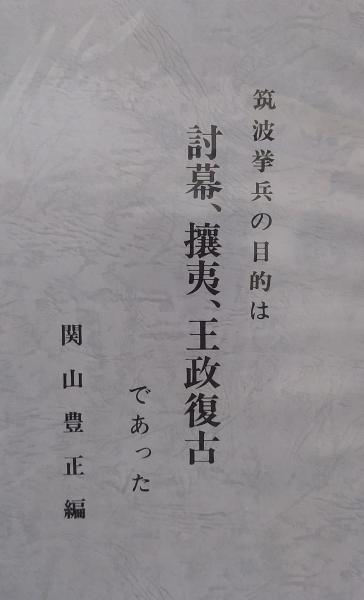 筑波挙兵の目的は
討幕、攘夷、王政復古
であった
関山豊正編